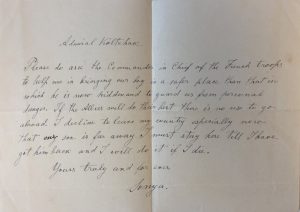 Admiral Koltchak.
Please do ask the Commander in Chief of the French troops
to help me in bringing our boy in a safer place than that in
which he is now hidden and to guard us from personal
danger. If the Allies will do their best there is no use to go
abroad. I decline to leave my country specially now
that my son is far away. I must stay here till I have
got him back and I will do it if I die.
Yours truly and for ever
Sonya.